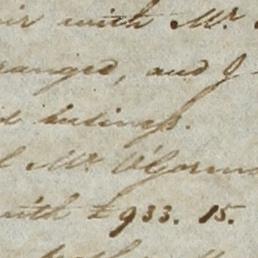 with Mr.
ranged, and I
business.
Mr. O'Gorma
with £933. 15.